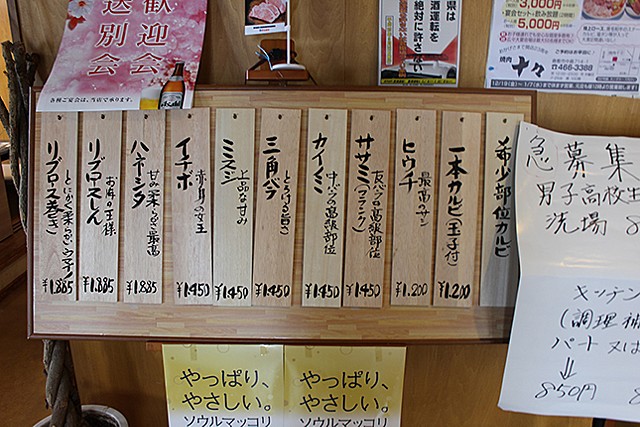 歓迎会
送別会
各種ご宴会は、当店で承ります。
県は
酒運転を
絶対に
許さない
3,000円
宴会セット+飲み放題
5,000円
焼肉
十々
466-3388
希少部位カルビ
一本カルビ(玉子付)
¥1,200
ヒウチ
最高のサシ
¥1,200
ササミ(フランク)
友バラの高級部位
¥1,450
カイノミ
中バラの高級部位
¥1,450
三角バラ
とろける旨さ
¥1,450
ミスジ
上品な甘み
¥1,450
イチボ
赤身の女王
¥1,450
ハネシタ
甘み柔らか最高
¥1,885
リブロースしん
お肉の王様
¥1,885
リブロース巻き
とにかく柔らかウマイ
¥1,885
急募集
男子高校生
洗場
キッチン
(調理補
パート又は
↓
850円
やっぱり、
やさしい。
ソウルマッコリ
やっぱり、
やさしい。
ソウルマッコリ